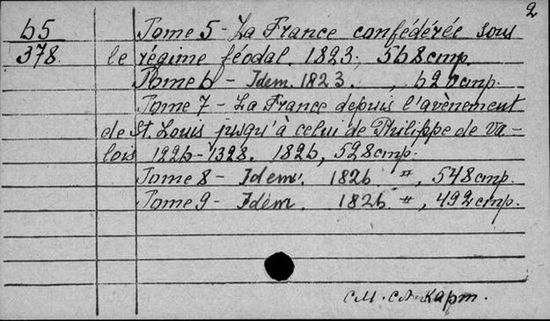 2
65 Tome 5 - La France confédérée sous
378. le régime féodal. 1823. 568 стр.
Tome 6 - Idem. 1823. , 620 стр.
Tome 7 - La France depuis l'avènement
de St. Louis jusqu'à celui de Philippe de Va-
lois 1226-1328. 1826, 528 стр.
Tome 8 - Idem. 1826 " , 548 стр.
Tome 9 - Idem. 1826 " , 492 стр.
См. сл. карт.